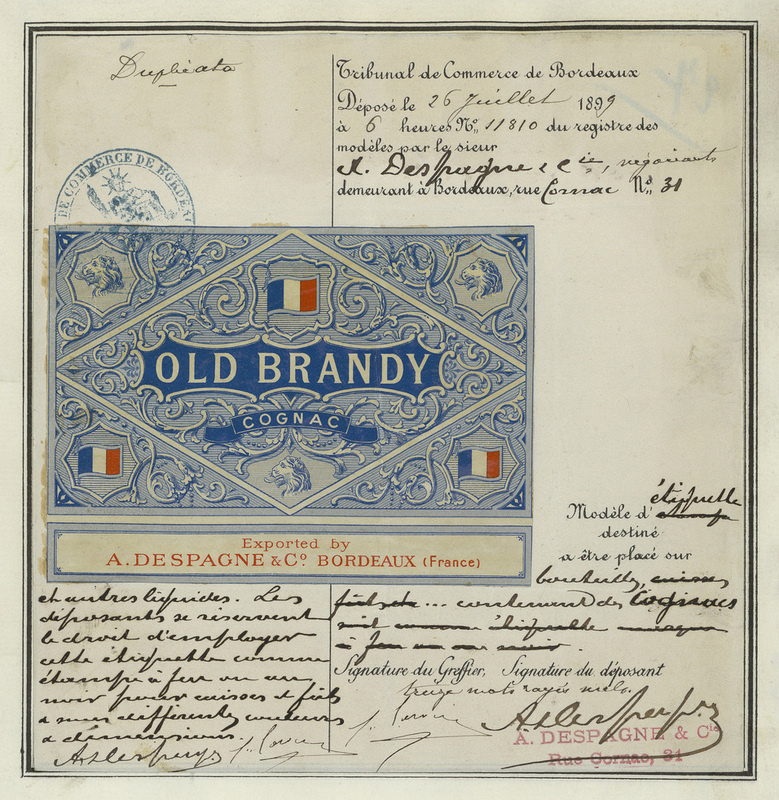 Duplicata
Tribunal de Commerce de Bordeaux
Déposé le 26 Juillet 1899
à 6 heures No. 11810 du registre des
modèles par le sieur
A. Despagne & Cie, négociants
demeurant à Bordeaux, rue Cornac No. 31
DE COMMERCE DE BORDEAUX
OLD BRANDY
COGNAC
Exported by
A. DESPAGNE & Co. BORDEAUX (France)
Modèle d'étiquette
destiné
a être placé sur
bouteilles, caisses
fûts etc... contenant des Cognacs
soit comme étiquette marque
à feu ou au noir.
et autres liquides. Les
déposants se réservent
le droit d'employer
cette étiquette comme
étampe à feu ou au
noir pour caisses et fûts
a sur différentes couleurs
& dimensions.
Signature du Greffier, Signature du déposant
treize mots rayés nuls.
A. DESPAGNE & Cie
Rue Cornac, 31